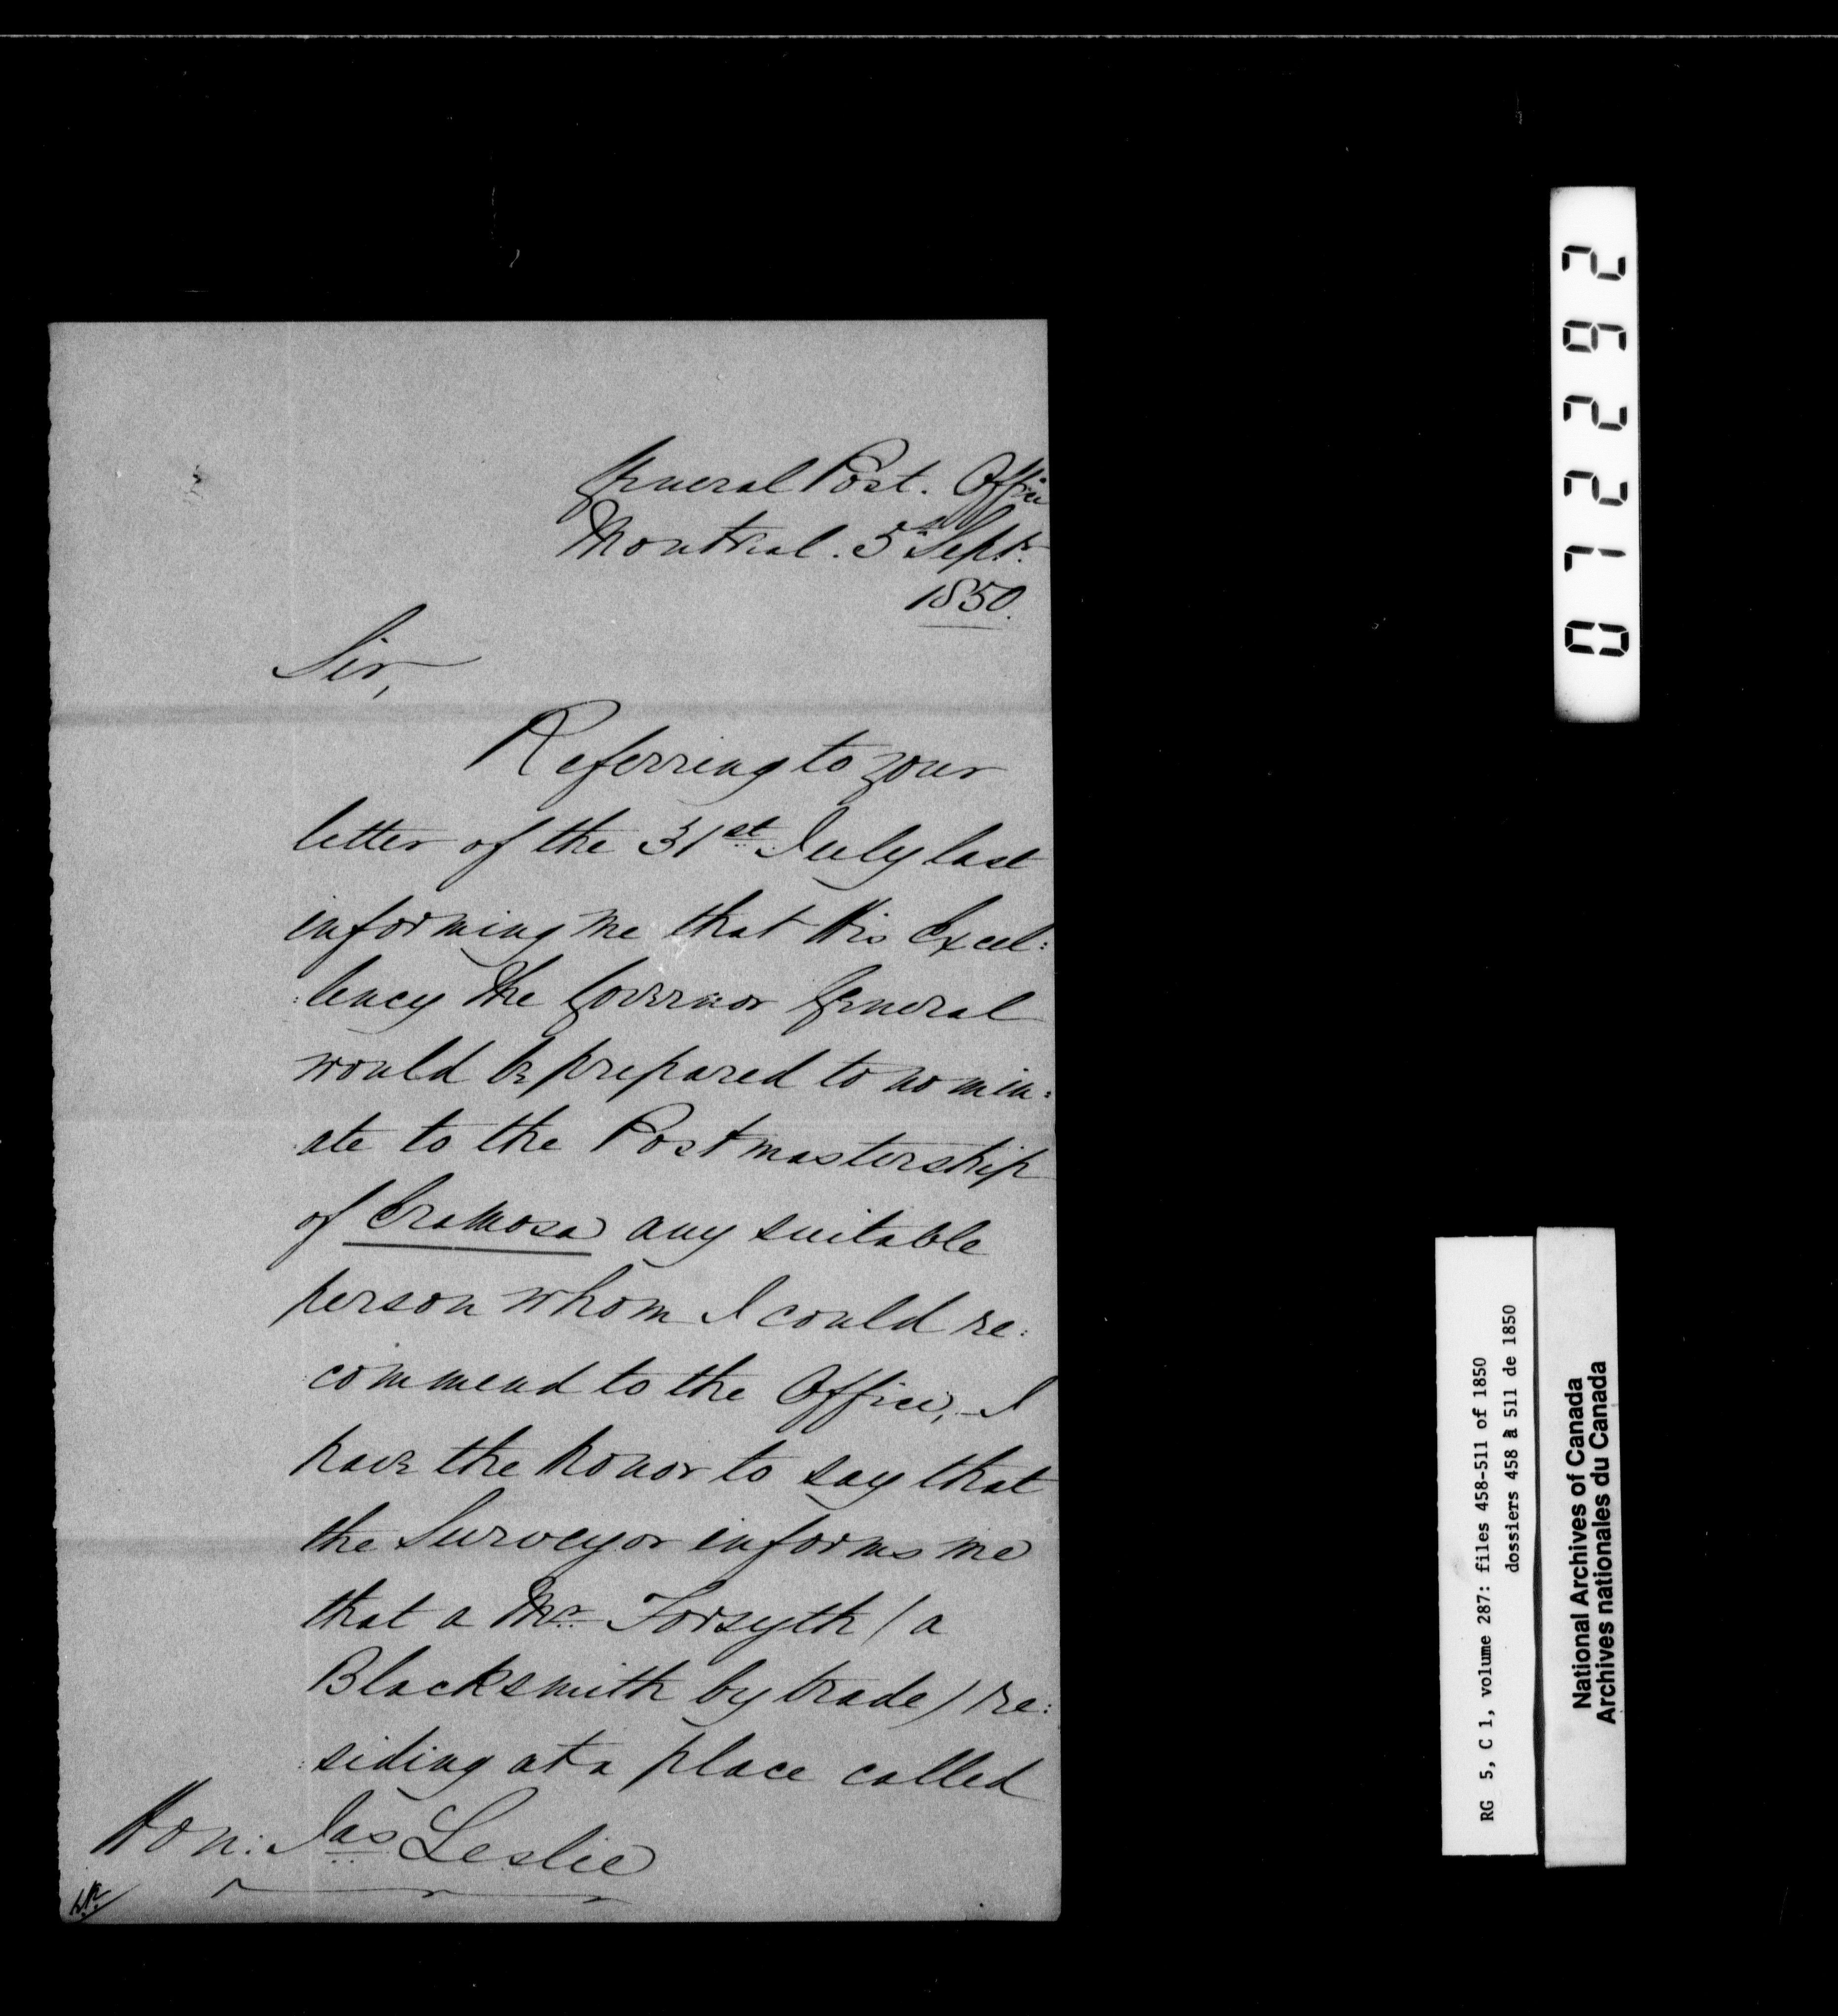 General Post. Office
Montreal. 5th Septr.
1850.
Sir,
Referring to your
letter of the 31st July last
informing me that His Excel:
:lency the Governor General
would be prepared to nomin:
:ate to the Postmastership
of Eramosa any suitable
person whom I could re:
:commend to the Office, I
have the honor to say that
the Surveyor informs me
that a Mr. Forsyth (a
Blacksmith by trade) re:
:siding at a place called
Hon: Jas Leslie
072292
RG 5, C 1, volume 287: files 458-511 of 1850
dossiers 458 à 511 de 1850
National Archives of Canada
Archives nationales du Canada